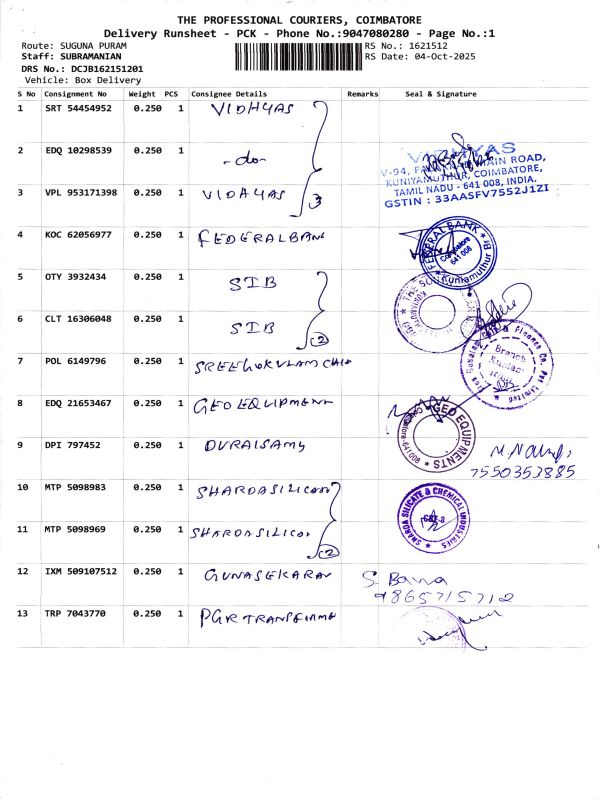 THE PROFESSIONAL COURIERS, COIMBATORE
Delivery Runsheet - PCK - Phone No.:9047080280 - Page No.:1
Route: SUGUNA PURAM
RS No.: 1621512
Staff: SUBRAMANIAN
RS Date: 04-Oct-2025
DRS No.: DCJB162151201
Vehicle: Box Delivery
S No Consignment No Weight PCS Consignee Details Remarks Seal & Signature
1 SRT 54454952 0.250 1 VIDHYAS
2 EDQ 10298539 0.250 1 -do-
VIDHYAS
MAIN ROAD,
KUNIYAMUTHUR, COIMBATORE,
TAMIL NADU - 641 008, INDIA.
GSTIN : 33AASFV7552J1ZI
3 VPL 953171398 0.250 1 VIDHYAS 3
4 KOC 62056977 0.250 1 FEDERAL BANK
FEDERAL BANK
Coimbatore
641 008
Kuniamuthur Br
5 OTY 3932434 0.250 1 SIB
6 CLT 16306048 0.250 1 SIB 2
7 POL 6149796 0.250 1 SREEGOKULAM CHIT
& Finance Co. Pvt Limited
Branch
8 EDQ 21653467 0.250 1 GEO EQUIPMENT
GEO EQUIPMENTS
641008
9 DPI 797452 0.250 1 DURAISAMY
7550353885
10 MTP 5098983 0.250 1 SHARDA SILICON
SHARDA SILICATE & CHEMICAL INDUSTRIES
CBE-8
11 MTP 5098969 0.250 1 SHARDA SILICON 2
12 IXM 509107512 0.250 1 GUNASEKARAN
S. Bawa
9865715712
13 TRP 7043770 0.250 1 PGR TRANSFORMER